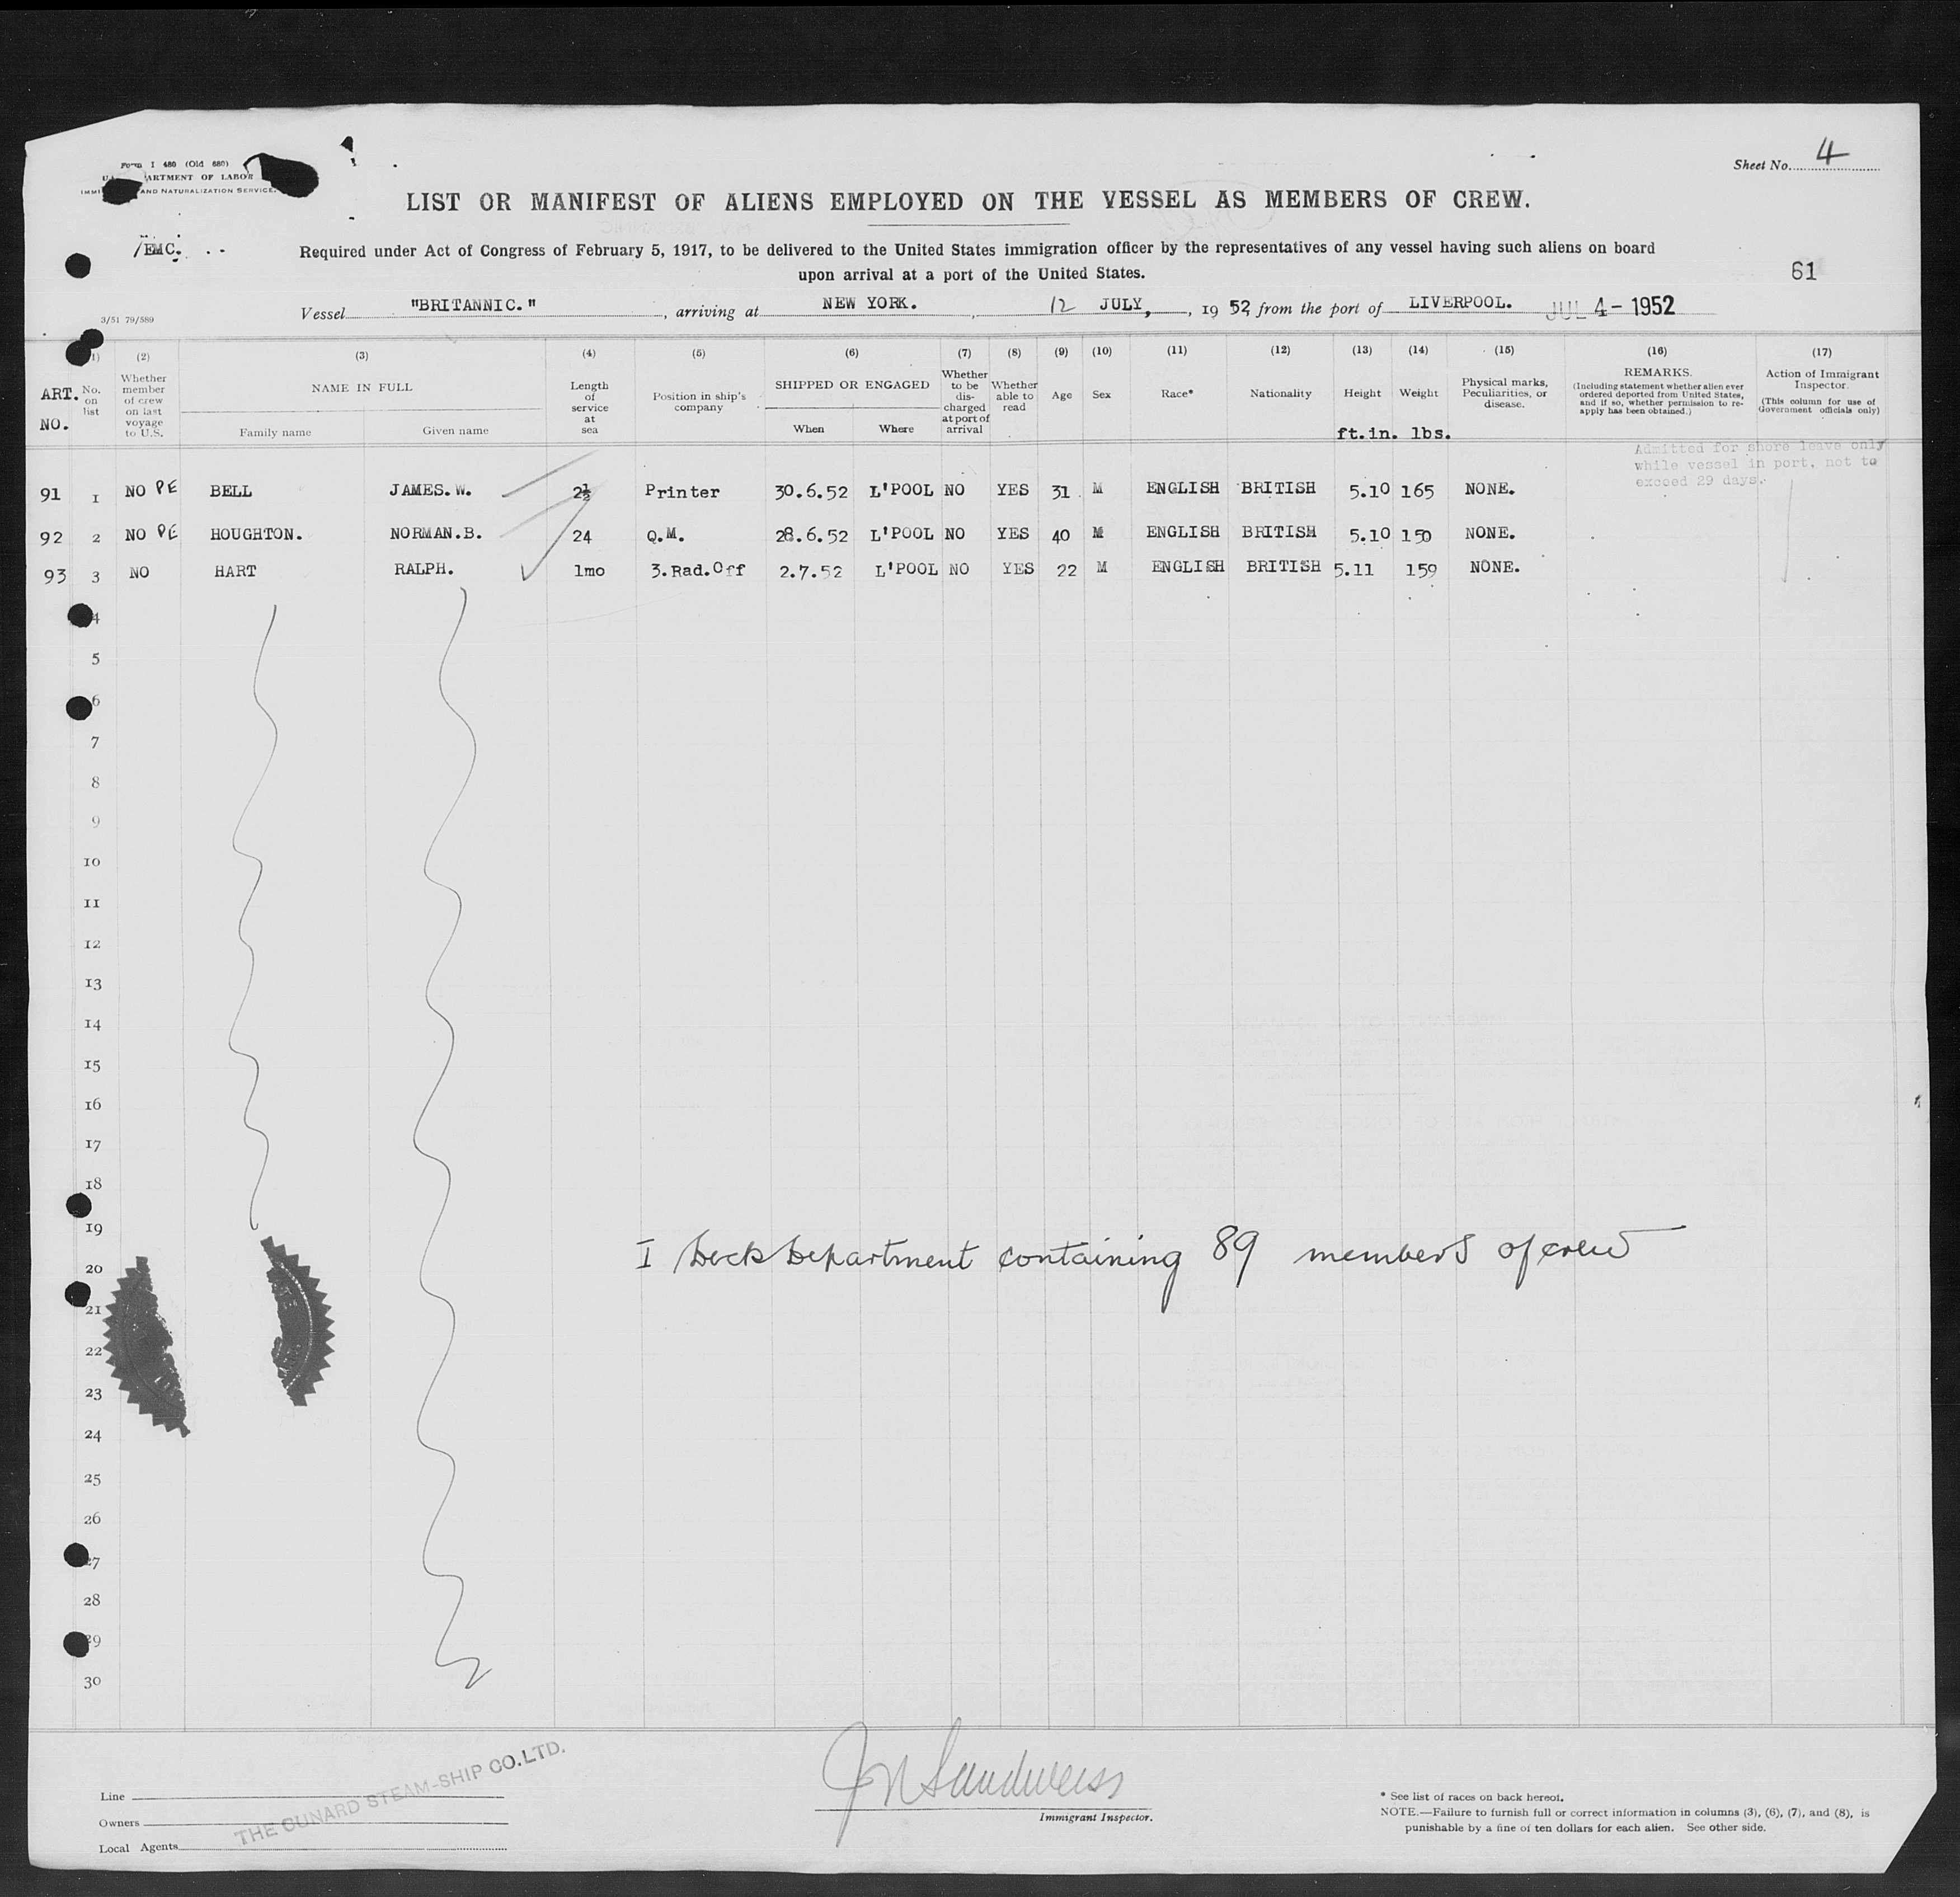 Form I 480 (Old 680)
ARTMENT OF LABOR
AND NATURALIZATION SERVICE.
Sheet No. 4
LIST OR MANIFEST OF ALIENS EMPLOYED ON THE VESSEL AS MEMBERS OF CREW.
/EMC.
Required under Act of Congress of February 5, 1917, to be delivered to the United States immigration officer by the representatives of any vessel having such aliens on board
upon arrival at a port of the United States.
61
3/51 79/589
Vessel "BRITANNIC." , arriving at NEW YORK. , 12 JULY, , 19 52, from the port of LIVERPOOL. JUL 4 - 1952
(1) (2) (3) (4) (5) (6) (7) (8) (9) (10) (11) (12) (13) (14) (15) (16) (17)
ART. NO.
No. on list
Whether member of crew on last voyage to U.S.
NAME IN FULL
Family name Given name
Length of service at sea
Position in ship's company
SHIPPED OR ENGAGED
When Where
Whether to be discharged at port of arrival
Whether able to read
Age
Sex
Race*
Nationality
Height
ft.in.
Weight
lbs.
Physical marks, Peculiarities, or disease.
REMARKS.
(Including statement whether alien ever ordered deported from United States, and if so, whether permission to reapply has been obtained.)
Action of Immigrant Inspector.
(This column for use of Government officials only)
Admitted for shore leave only
while vessel in port, not to
exceed 29 days.
91 1 NO PE BELL JAMES.W. 2½ Printer 30.6.52 L'POOL NO YES 31 M ENGLISH BRITISH 5.10 165 NONE.
92 2 NO PE HOUGHTON. NORMAN.B. 24 Q.M. 28.6.52 L'POOL NO YES 40 M ENGLISH BRITISH 5.10 150 NONE.
93 3 NO HART RALPH. 1mo 3.Rad.Off 2.7.52 L'POOL NO YES 22 M ENGLISH BRITISH 5.11 159 NONE.
4
5
6
7
8
9
10
11
12
13
14
15
16
17
18
19
I Deck Department containing 89 members of crew
20
21
22
23
24
25
26
27
28
29
30
THE CUNARD STEAM-SHIP CO.LTD.
Line
Owners
Local Agents
J N Sandweiss
Immigrant Inspector.
* See list of races on back hereof.
NOTE.—Failure to furnish full or correct information in columns (3), (6), (7), and (8), is
punishable by a fine of ten dollars for each alien. See other side.